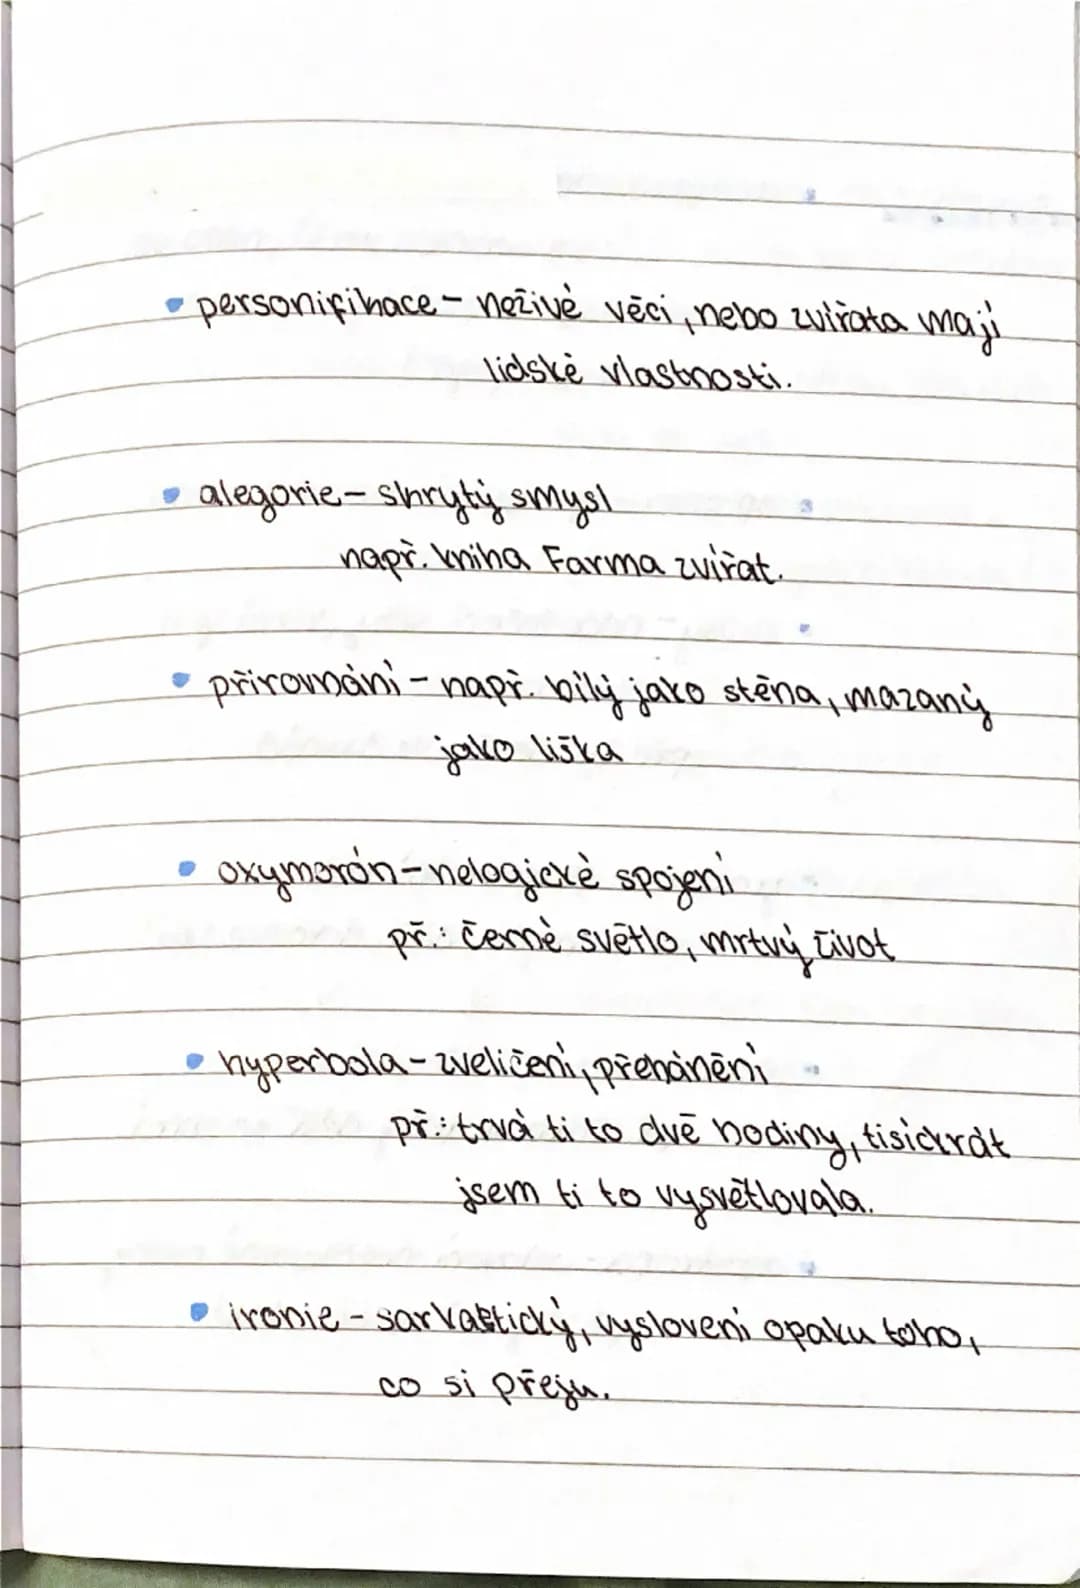 • personifikace - neživé věci, nebo zvířata mají
lidské vlastnosti.
• alegorie - skrytý smysl
např. kniha Farma zvířat.
• přirovnání - např. bílý jako stěna, mazaný
jako liška
• oxymorón - nelogické spojení
př.: černé světlo, mrtvý život
• hyperbola - zveličení, přehánění
př.: trvá ti to dvě hodiny, tisíckrát
jsem ti to vysvětlovala.
• ironie - sarkastický, vyslovení opaku toho,
co si přeju.